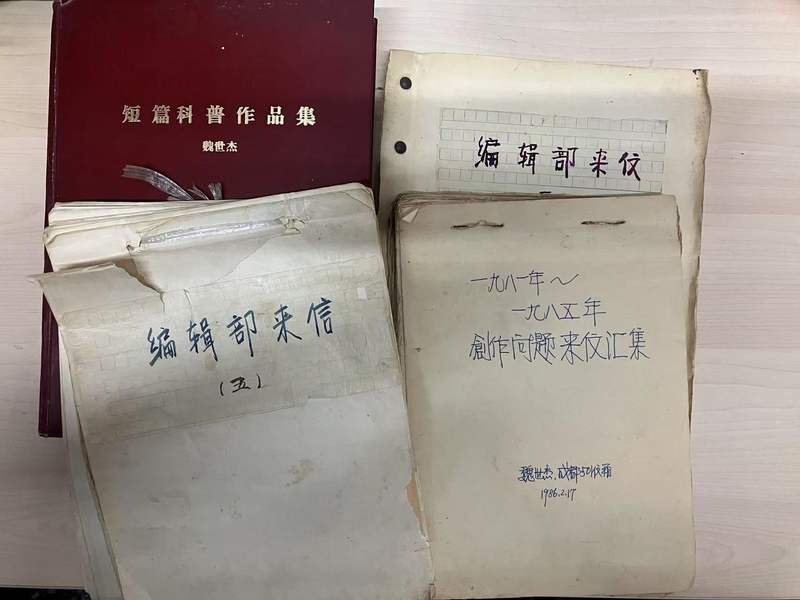 短篇科普作品集
魏世杰
编辑部来伩
编辑部来信
（五）
一九八一年～
一九八五年
創作问题来伩汇集
魏世杰.成都501伩箱
1986.2.17